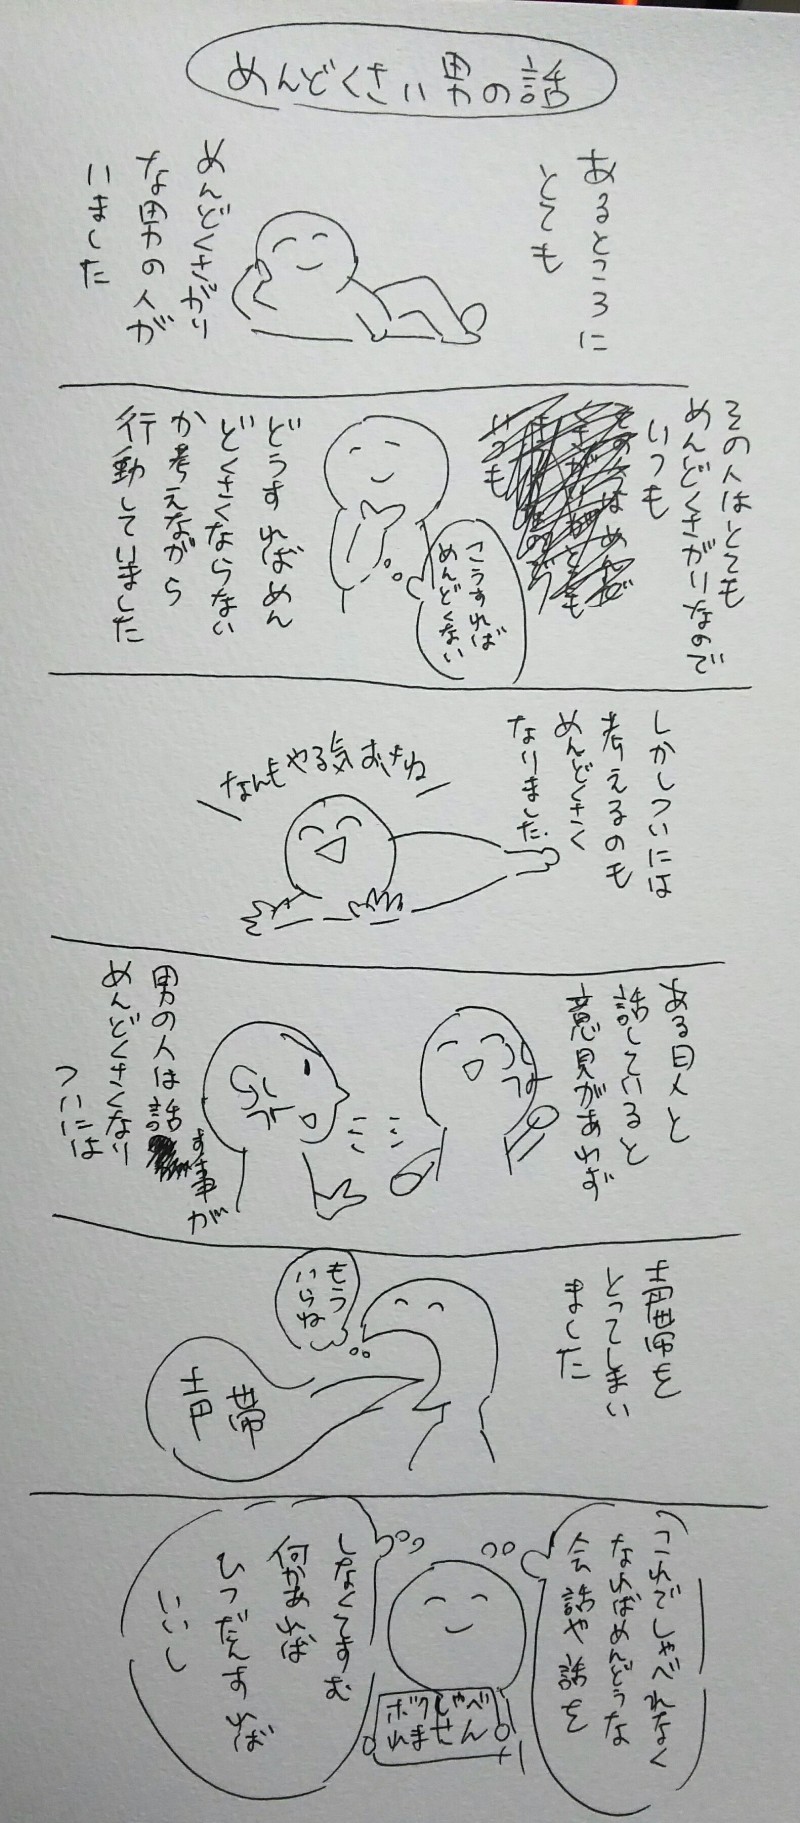 めんどくさい男の話
あるところに
とても
めんどくさがり
な男の人が
いました
その人はとても
めんどくさがりなので
いつも
こうすれば
めんどくない
どうすればめん
どくさくならない
か考えながら
行動していました
しかしついには
考えるのも
めんどくさく
なりました
なんもやる気おきね
ある日人と
話していると
意見があわず
男の人は話す事が
めんどくさくなり
ついには
声帯を
とってしまい
ました
もう
いらね
声帯
これでしゃべれなく
なればめんどうな
会話や話を
しなくてすむ
何かあれば
ひつだんすれば
いいし
ボクしゃべ
れません